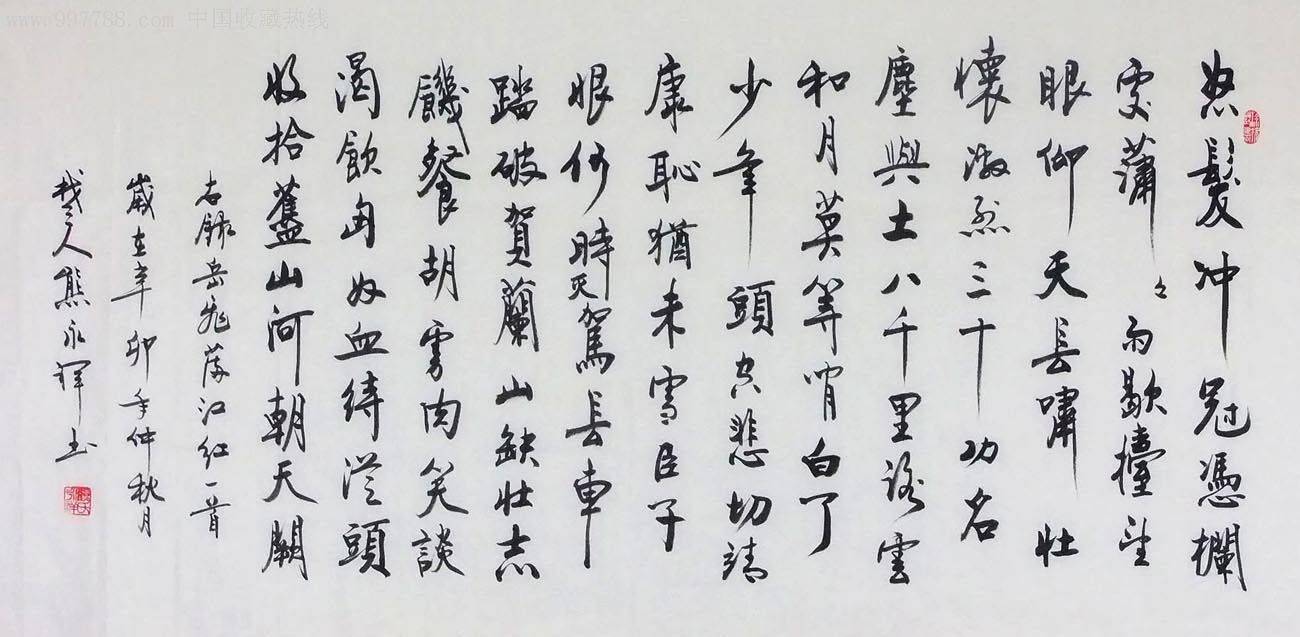 www.997788.com 中国收藏热线
怒髮冲冠憑欄
處蕭々雨歇擡望
眼仰天長嘯壯
懷激烈三十功名
塵與土八千里路雲
和月莫等閒白了
少年頭空悲切靖
康恥猶未雪臣子
恨何時灭駕長車
踏破賀蘭山缺壯志
饑餐胡虜肉笑談
渴飲匈奴血待從頭
收拾舊山河朝天闕
右錄岳飛滿江紅一首
歲在辛卯年仲秋月
楚人熊永輝书